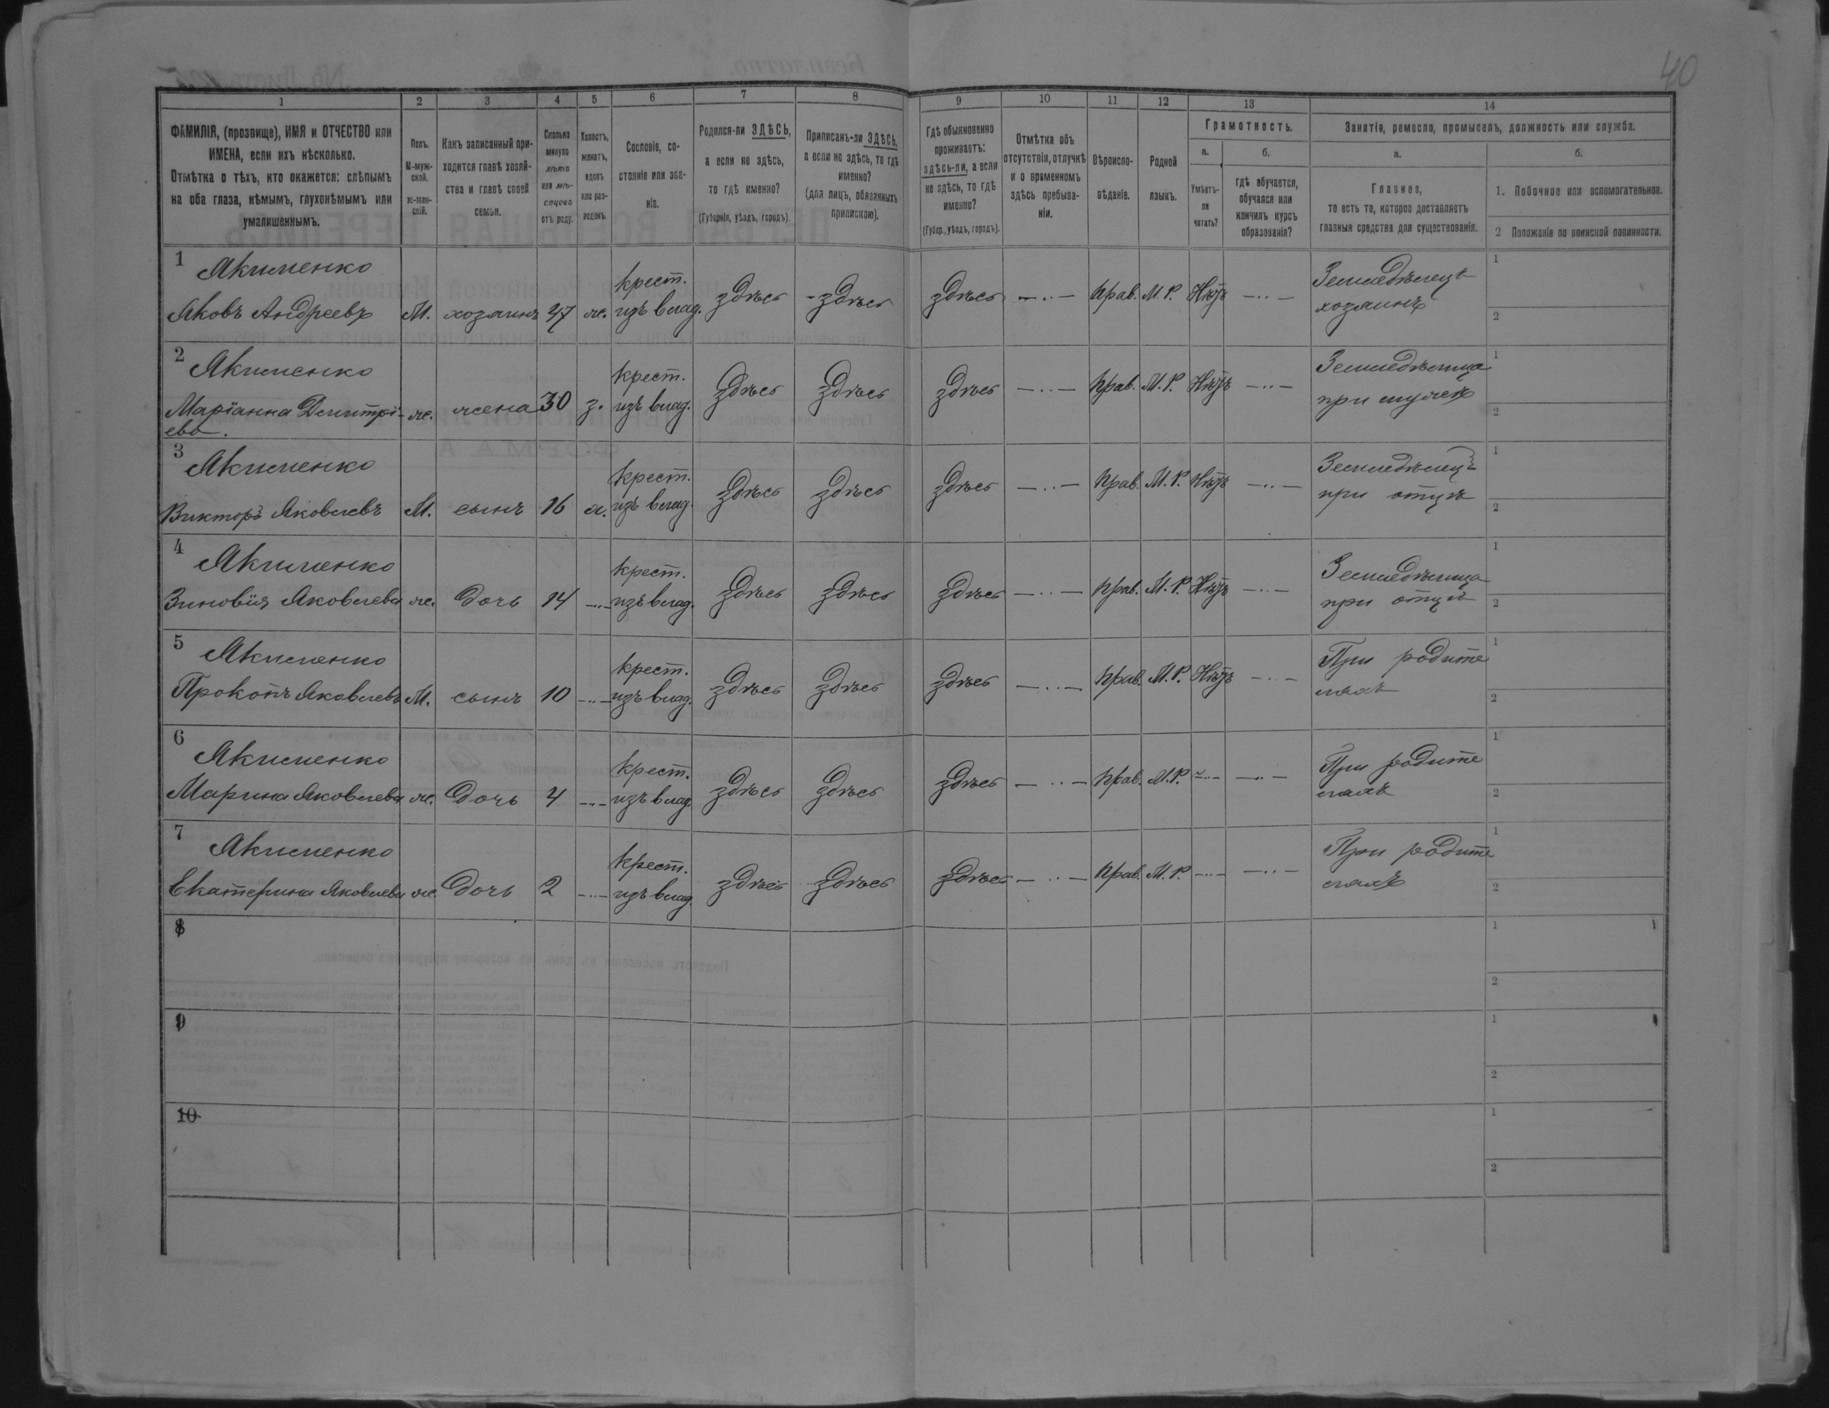 40
1 2 3 4 5 6 7 8 9 10 11 12 13 14
ФАМИЛІЯ, (прозвище), ИМЯ и ОТЧЕСТВО или
ИМЕНА, если ихъ нѣсколько.
Отмѣтка о тѣхъ, кто окажется: слѣпымъ
на оба глаза, нѣмымъ, глухонѣмымъ или
умалишеннымъ.
Полъ.
М-муж-
ской.
ж-жен-
скій.
Какъ записанный при-
ходится главѣ хозяй-
ства и главѣ своей
семьи.
Сколько
минуло
лѣтъ
или мѣ-
сяцевъ
отъ роду.
Холостъ,
женатъ,
вдовъ
или раз-
веденъ.
Сословіе, со-
стояніе или зва-
ніе.
Родился-ли ЗДѢСЬ,
а если не здѣсь,
то гдѣ именно?
(Губернія, уѣздъ, городъ).
Приписанъ-ли ЗДѢСЬ,
а если не здѣсь, то гдѣ
именно?
(для лицъ, обязанныхъ
припискою).
Гдѣ обыкновенно
проживаетъ:
здѣсь-ли, а если
не здѣсь, то гдѣ
именно?
(Губер., уѣздъ, городъ).
Отмѣтка объ
отсутствіи, отлучкѣ
и о временномъ
здѣсь пребыва-
ніи.
Вѣроиспо-
вѣданіе.
Родной
языкъ.
Грамотность.
а.
Умѣетъ-
ли
читать?
б.
гдѣ обучается,
обучался или
кончилъ курсъ
образованія?
Занятіе, ремесло, промыселъ, должность или служба.
а.
Главное,
то есть то, которое доставляетъ
главныя средства для существованія.
б.
1. Побочное или вспомогательное.
2 Положеніе по воинской повинности.
1 Якименко крест. Земледѣлецъ 1
Яковъ Андреевъ М. хозяинъ 37 ж. изъ влад. здѣсь здѣсь здѣсь — .. — прав. М. Р. Нѣтъ — .. — хозяинъ 2
2 Якименко крест. Земледѣлица 1
Маріанна Дмитрі- ж. жена 30 з. изъ влад. здѣсь здѣсь здѣсь — .. — прав. М. Р. Нѣтъ — .. — при мужѣ 2
ева.
3 Якименко крест. Земледѣлецъ 1
Викторъ Яковлевъ М. сынъ 16 х. изъ влад. здѣсь здѣсь здѣсь — .. — прав. М. Р. Нѣтъ — .. — при отцѣ 2
4 Якименко крест. Земледѣлица 1
Зиновія Яковлева ж. дочь 14 — .. — изъ влад. здѣсь здѣсь здѣсь — .. — прав. М. Р. Нѣтъ — .. — при отцѣ 2
5 Якименко крест. При родите 1
Прокопъ Яковлевъ М. сынъ 10 — .. — изъ влад. здѣсь здѣсь здѣсь — .. — прав. М. Р. Нѣтъ — .. — ляхъ 2
6 Якименко крест. При родите 1
Марина Яковлева ж. дочь 4 — .. — изъ влад. здѣсь здѣсь здѣсь — .. — прав. М. Р. — .. — — .. — ляхъ 2
7 Якименко крест. При родите 1
Екатерина Яковлева ж. дочь 2 — .. — изъ влад. здѣсь здѣсь здѣсь — .. — прав. М. Р. — .. — — .. — ляхъ 2
8 1
2
9 1
2
10 1
2